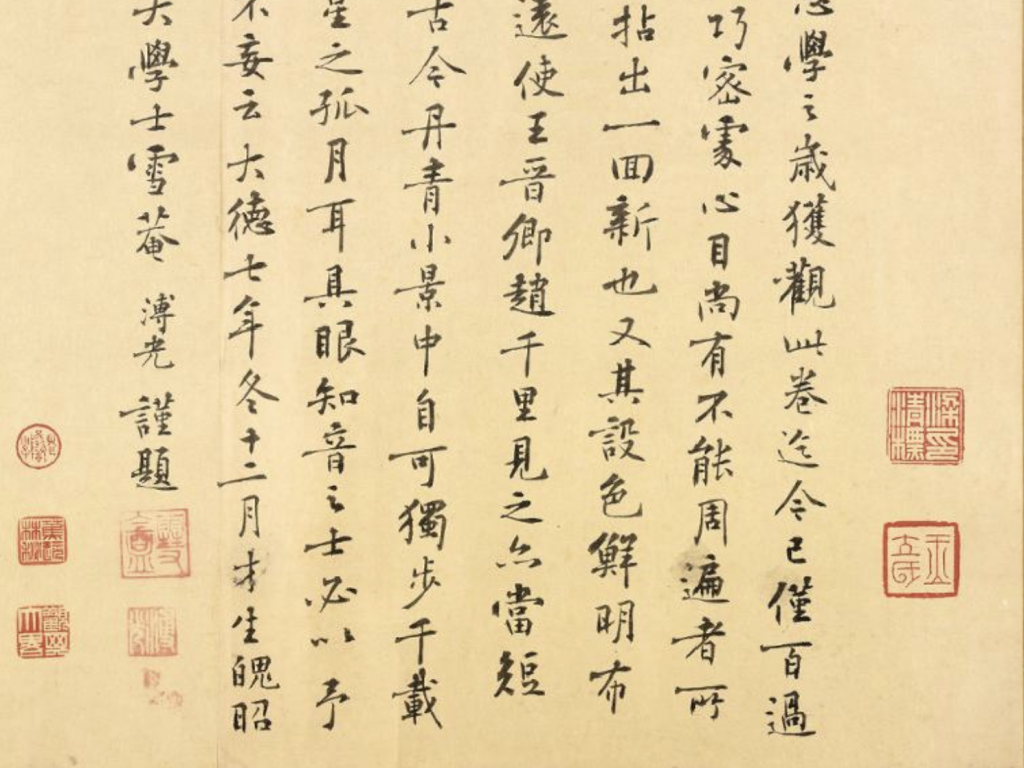 學之歲獲觀此卷迄今已僅百過
巧密處心目尚有不能周遍者所
拈出一回新也又其設色鮮明布
遠使王晉卿趙千里見之亦當短
古今丹青小景中自可獨步千載
星之孤月耳具眼知音之士必以予
不妄云大德七年冬十二月才生魄昭
大學士雪菴溥光謹題